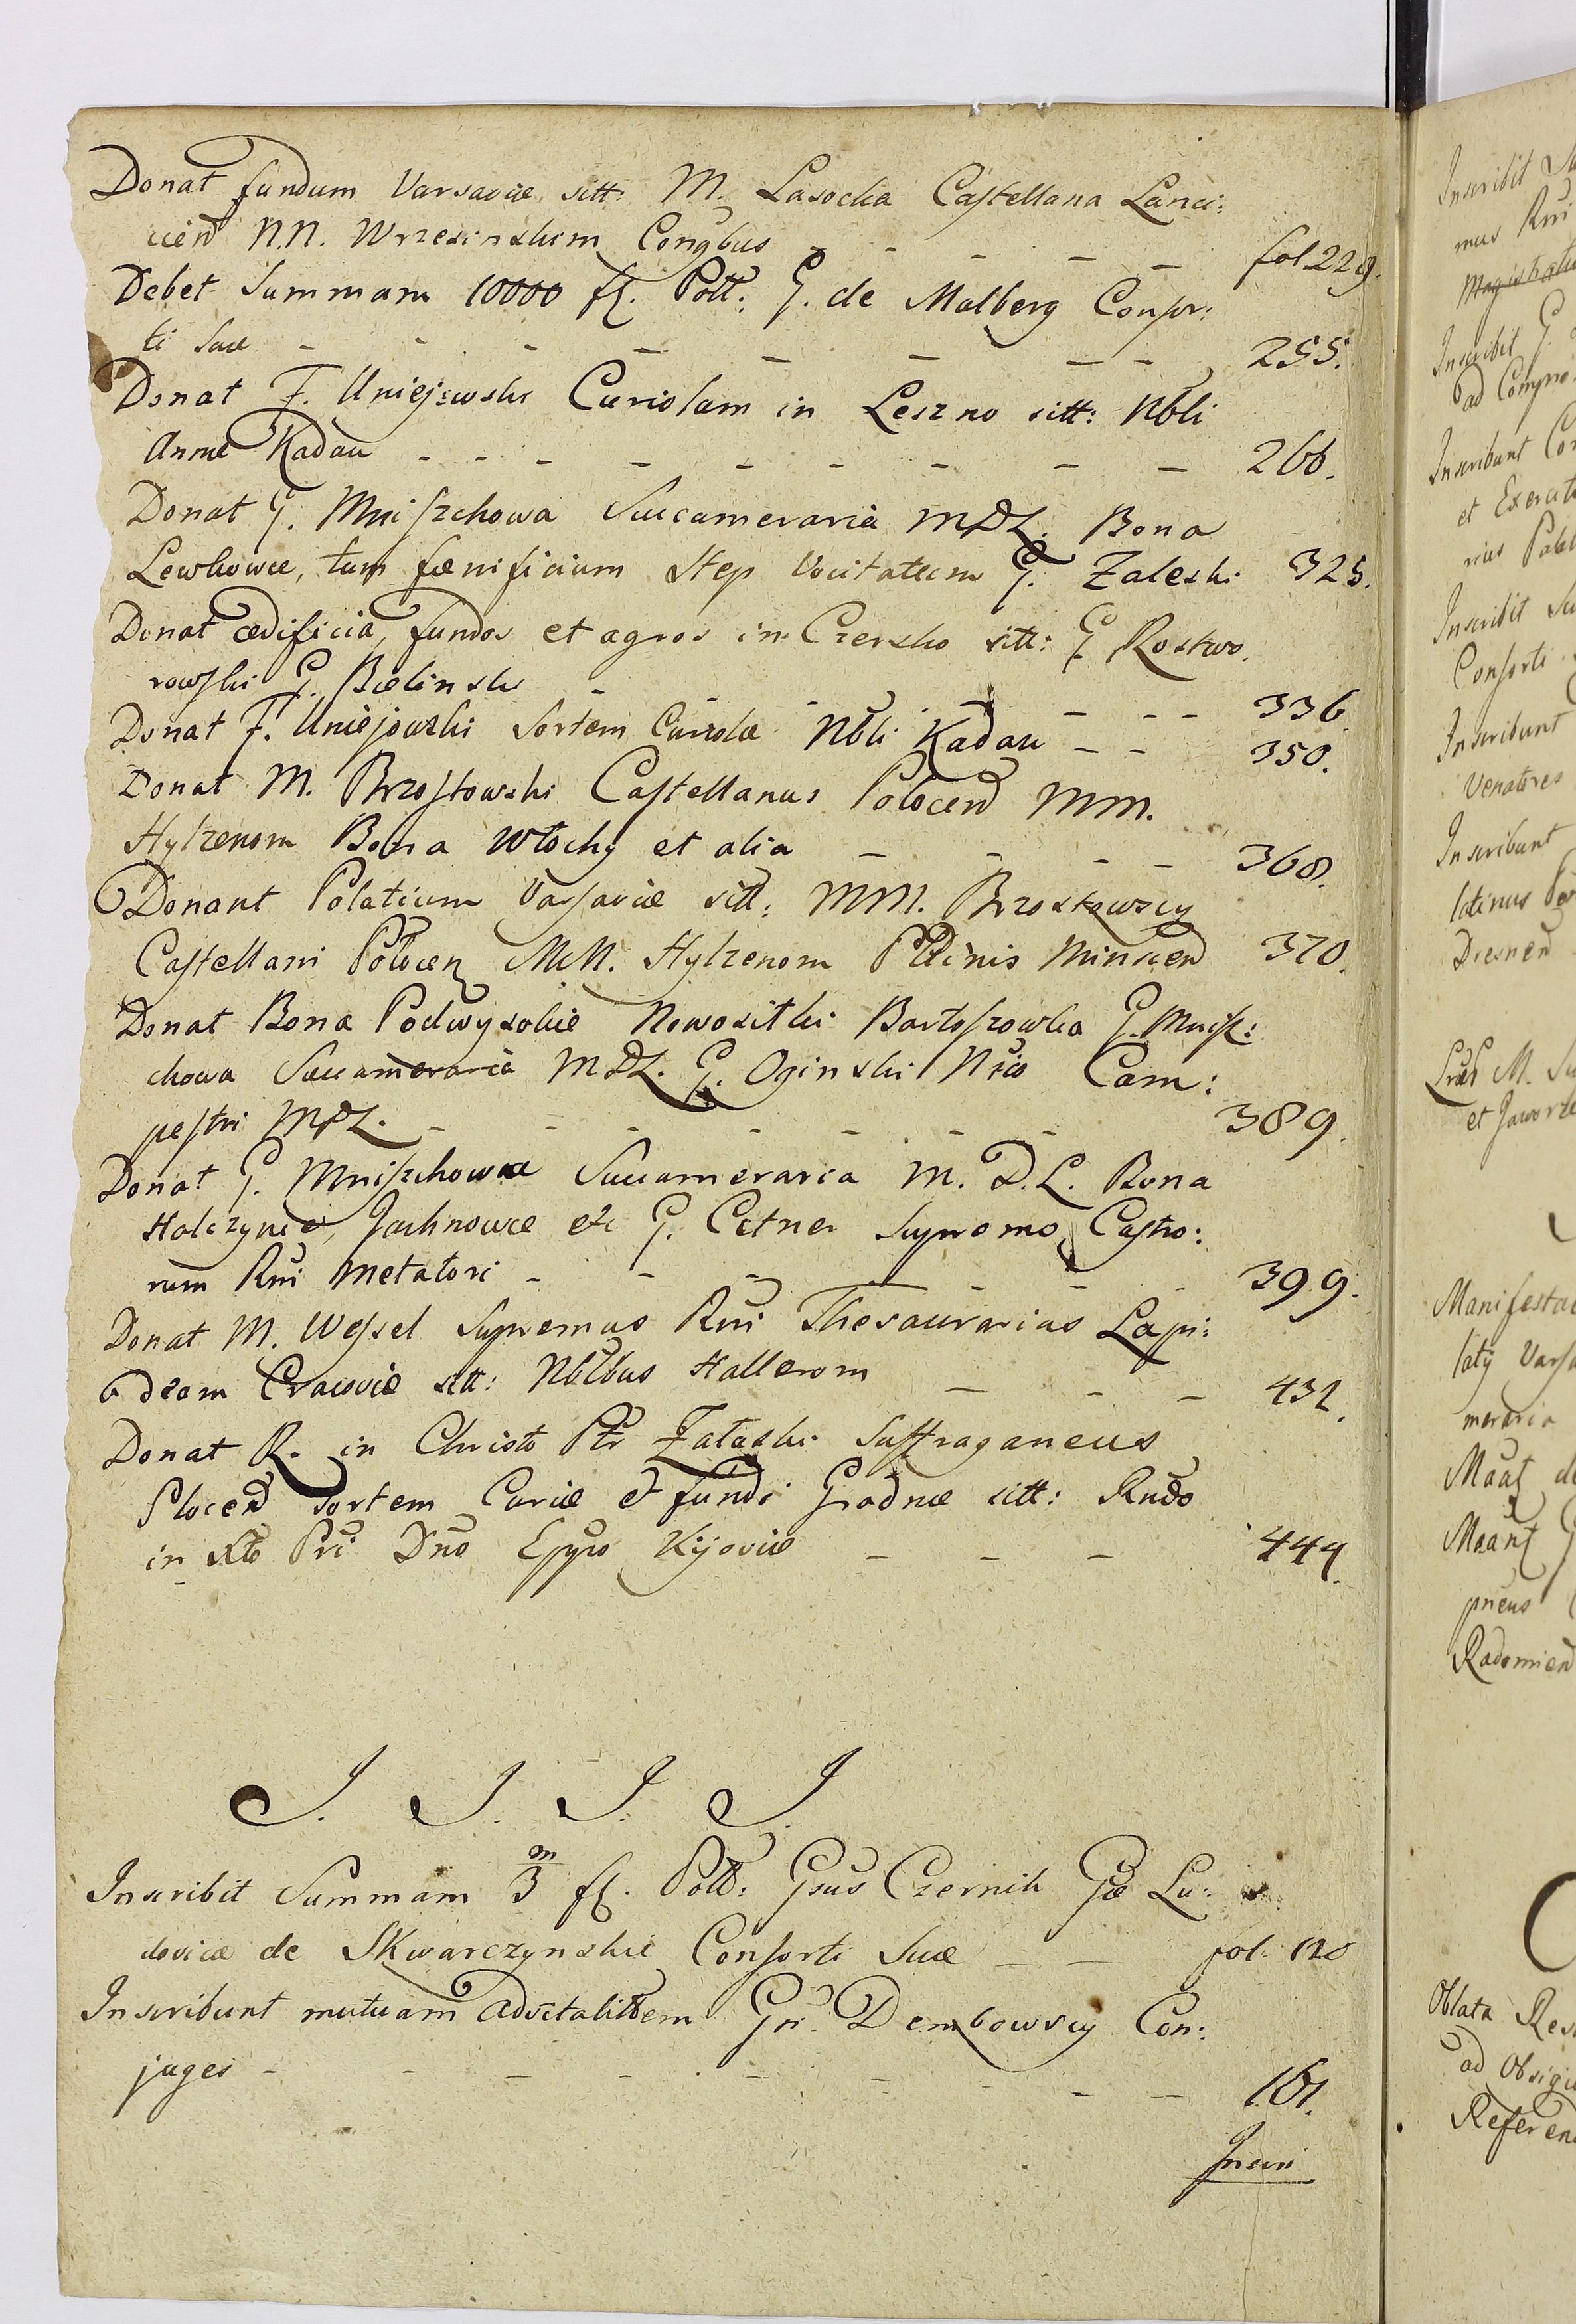 Donat fundum Varsaviæ sitt: M. Lasocka Castellana Lanci:
cien N.N. Wrzesinskim Conjgbus _ _ _ _ fol 229.
Debet Summam 10000 fl. Poll: G. de Malberg Consor:
ti suæ _ _ _ _ _ _ _ _ 255.
Donat F. Uniejewski Curiolam in Leszno sitt: Nbli
Annæ Kadau _ _ _ _ _ _ _ _ _ 266.
Donat G. Mniszchowa Succameraria MDL. Bona
Lewkowce, tum fœnificium Step Vocitatum G. Zaleski 325.
Donat ædificia, fundos et agros in Czersko sitt: G. Rostwo.
rowski G. Bielinski _ _ _ _ _ _ 336
Donat F. Uniejowski Sortem Curiolæ Nbli Kadau _ _ 350.
Donat M. Brzostowski Castellanus Polocen MM.
Hylzenom Bona Włochy et alia _ _ _ _ 368.
Donant Palatium Varsaviæ sitt: MM. Brzostowscy
Castellani Polocen MM. Hylzenom Pltinis Minscen 370.
Donat Bona Podwysokie Nowosiłki Bartoszowka G. Mnisz:
chowa Succameraria MDL. G. Oginski Nrio Cam:
pestri MDL. _ _ _ _ _ _ _ 389.
Donat G. Mniszchowa Succameraria M.D.L. Bona
Holczynce, Jachnowce etc G. Cetner Supremo Castro:
rum Rni Metatori _ _ _ _ _ _ 399.
Donat M. Wessel Supremus Rni Thesaurarius Lapi:
deam Cracoviæ sitt: Nblbus Hallerom _ _ _ 432.
Donat R. in Christo Ptr Załuski Suffraganeus
Plocen Sortem Curiæ et fundi Grodnæ sitt: Rndo
in Xto Pri Dno Eppo Kijoviæ _ _ _ 444.
I. I. I. I.
m
Inscribit Summam 3 fl. Poll: Gsus Czernik Gæ Lu:
dovicæ de Skwarczynskie Consorti Suæ _ _ fol. 120
Inscribunt mutuam advitalittem Gri Dembowscy Con:
juges _ _ _ _ _ _ _ _ _ 161.
Inscri
Inscribit
mus Rni
Magistratu
Inscribit G.
ad Compro
Inscribunt Con
et Exercit
rius Palat
Inscribit Su
Consorti
Inscribunt
Venatores
Inscribunt
latinus
Dresnen
M. Su
et Jaworze
Manifestat
latij Varsa
meraria
Radomien
Oblata
ad Obsigi
Referen